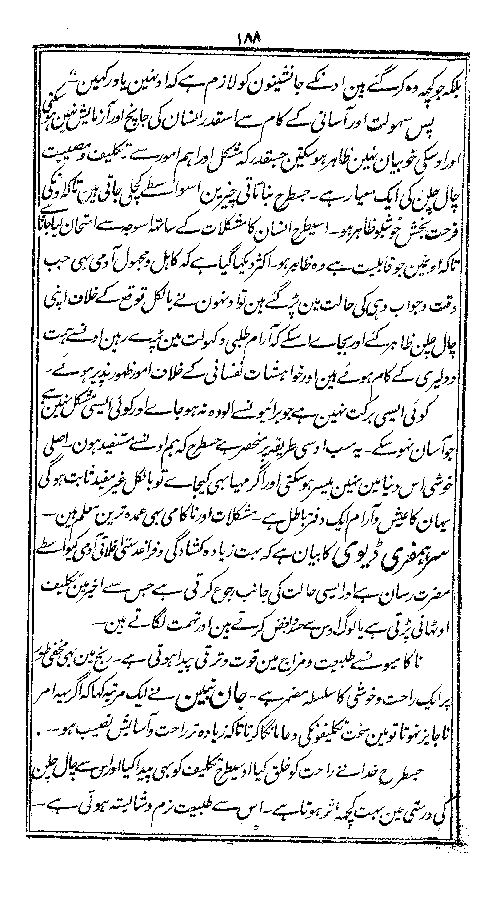 ۱۸۸
بلکہ جو کچھ وہ کر گئے ہین اونکے جانشینون کو لازم ہے کہ اونہین یاد رکہین"
پس سہولت اور آسانی کے کام سے اسقدر انسان کی جانچ اور آزمایش نہین ہو سکتی
اور اوسکی خوبیان نہین ظاہر ہو سکتین جسقدر کہ مشکل اور اہم امور سے تکلیف و مصیبت
چال چلن کی ایک معیار ہے۔ جسطرح نباتاتی چیزین اسواسطے کچلی جاتی ہین تاکہ اونکی
فرحت بخش خوشبو ظاہر ہو۔ اسیطرح انسان کا مشکلات کے ساتھ اسوجہ سے امتحان لیا جاتا ہے
تاکہ اونمین جو قابلیت ہے وہ ظاہر ہو۔ اکثر دیکہا گیا ہے کہ کاہل و مجہول آدمی بہی جب
وقت و جواب دہی کی حالت مین پڑ گئے ہین تو اونہون نے بالکل توقع کے خلاف اپنی
چال چلن ظاہر کئے اور بجاے اسکے کہ آرام طلبی و کہولت مین پڑے رہین اونسے ہمت
و دلیری کے کام ہوئے ہین اور خواہشات نفسانی کے خلاف امور ظہور پذیر ہوئے۔
کوئی ایسی برکت نہین ہے جو برائیونسے آلودہ نہ ہو جاے اور کوئی ایسی مشکل نہین ہے
جو آسان نہو سکے۔ یہ سب اوسی طریقہ پر منحصر ہے جسطرح کہ ہم اونسے مستفید ہون۔ اصلی
خوشی اس دنیا مین نہین میسر ہو سکتی اور اگر مہیا بہی کیجاے تو بالکل غیر مفید ثابت ہو گی
یہان کا عیش و آرام ایک دفتر باطل ہے۔ مشکلات اور ناکامی بہی عمدہ ترین معلم ہین۔
سر ہمفری ڈیوی کا بیان ہے کہ بہت زیادہ کشادگی و فراغدستی اخلاقی آدمی کیواسطے
مضرت رسان ہے اور ایسی حالت کی جانب رجوع کرتی ہے جس سے اخیر مین تکلیف
اوٹہانی پڑتی ہے یا لوگ اوس سے حذر بغض کرتے ہین اور تہمت لگاتے ہین۔
ناکامیونسے طبیعت و مزاج مین قوت و ترقی پیدا ہوتی ہے۔ رنج مین بہی مخفی طور
پر ایک راحت و خوشی کا سلسلہ مضمر ہے۔ جان بنین نے ایک مرتبہ کہا کہ اگر یہ امر
ناجایز نہوتا تو مین سخت تکلیفونکی دعا مانگا کرتا تاکہ زیادہ تر راحت و آسایش نصیب ہو۔
جسطرح خدا نے راحت کو خلق کیا اوسیطرح تکلیف کو بہی پیدا کیا اور اس سے چال چلن
کی درستی مین بہت کچھ اثر ہوتا ہے۔ اس سے طبیعت نرم و شایستہ ہوتی ہے۔